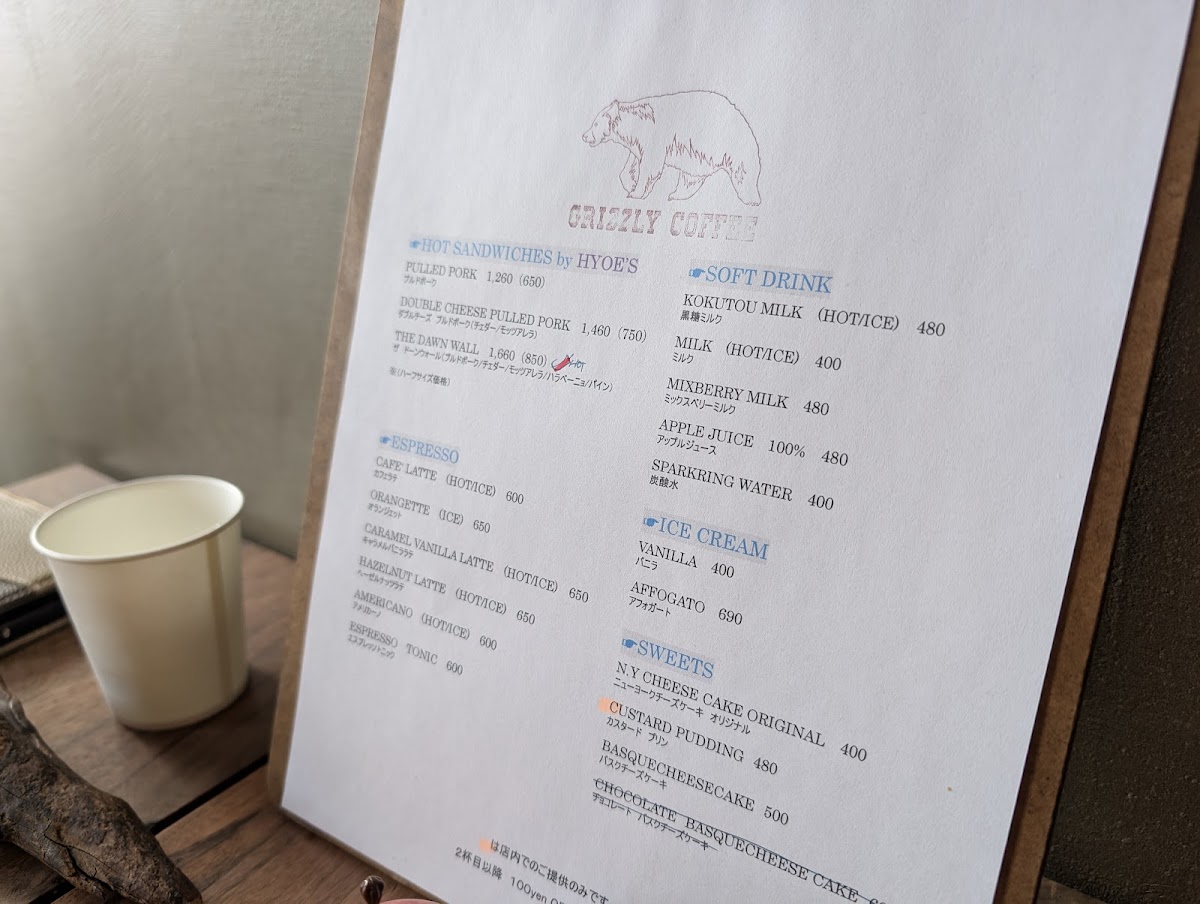 GRIZZLY COFFEE
☛HOT SANDWICHES by HYOE'S
PULLED PORK 1,260（650）
プルドポーク
DOUBLE CHEESE PULLED PORK 1,460（750）
ダブルチーズ プルドポーク（チェダー/モッツアレラ）
THE DAWN WALL 1,660（850） HOT
ザ ドーンウォール（プルドポーク/チェダー/モッツアレラ/ハラペーニョ/パイン）
※（ハーフサイズ価格）
☛ESPRESSO
CAFE' LATTE （HOT/ICE） 600
カフェラテ
ORANGETTE （ICE） 650
オランジェット
CARAMEL VANILLA LATTE （HOT/ICE） 650
キャラメルバニララテ
HAZELNUT LATTE （HOT/ICE） 650
ヘーゼルナッツラテ
AMERICANO （HOT/ICE） 600
アメリカーノ
ESPRESSO TONIC 600
エスプレッソトニック
☛SOFT DRINK
KOKUTOU MILK （HOT/ICE） 480
黒糖ミルク
MILK （HOT/ICE） 400
ミルク
MIXBERRY MILK 480
ミックスベリーミルク
APPLE JUICE 100% 480
アップルジュース
SPARKRING WATER 400
炭酸水
☛ICE CREAM
VANILLA 400
バニラ
AFFOGATO 690
アフォガート
☛SWEETS
N.Y CHEESE CAKE ORIGINAL 400
ニューヨークチーズケーキ オリジナル
CUSTARD PUDDING 480
カスタード プリン
BASQUECHEESECAKE 500
バスクチーズケーキ
CHOCOLATE BASQUECHEESE CAKE
チョコレート バスクチーズケーキ
は店内でのご提供のみです
2杯目以降 100yen